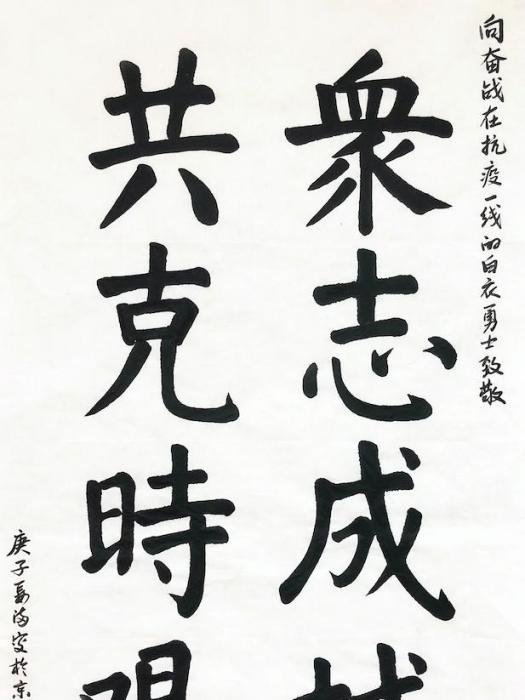 向奋战在抗疫一线的白衣勇士致敬
衆志成
共克時
庚子
於京